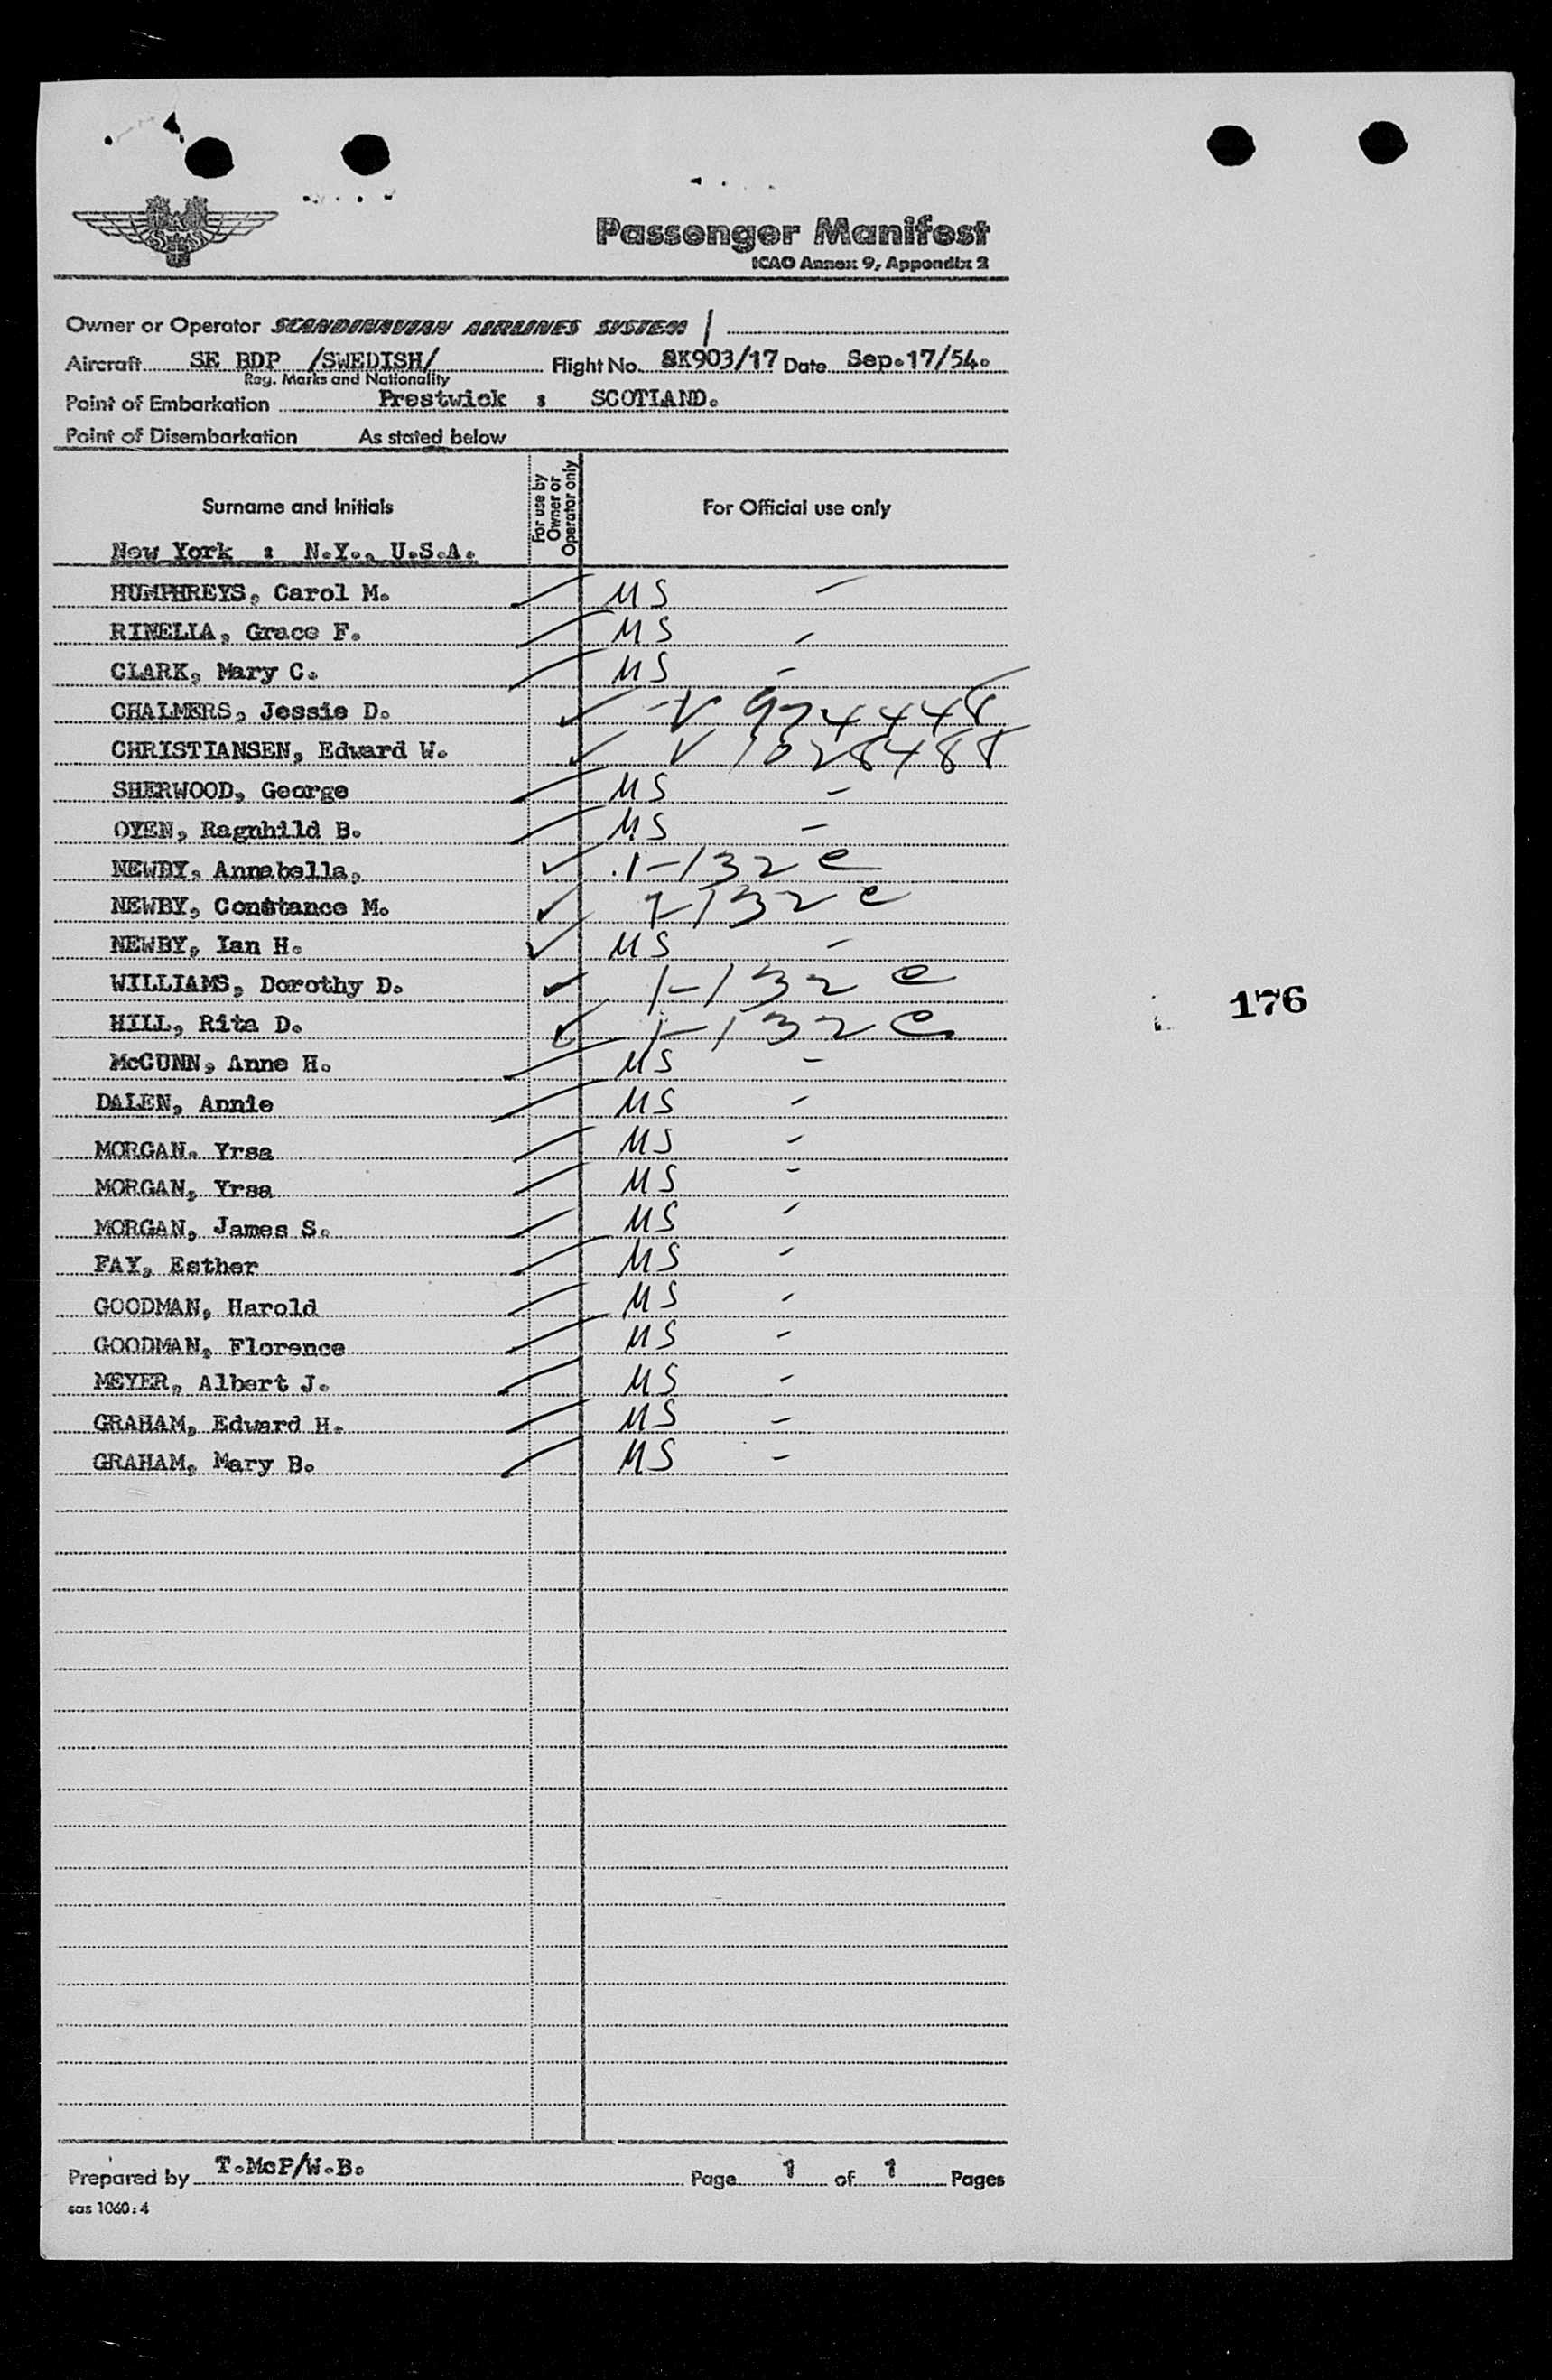 SAS
Passenger Manifest
ICAO Annex 9, Appendix 2
Owner or Operator SCANDINAVIAN AIRLINES SYSTEM /
Aircraft SE BDP /SWEDISH/ Flight No. SK903/17 Date Sep.17/54.
Reg. Marks and Nationality
Point of Embarkation Prestwick : SCOTLAND.
Point of Disembarkation As stated below
Surname and Initials For use by Owner or Operator only For Official use only
New York : N.Y., U.S.A.
HUMPHREYS, Carol M. US -
RINELLA, Grace F. US -
CLARK, Mary C. US -
CHALMERS, Jessie D. ✓ -V 974448
CHRISTIANSEN, Edward W. ✓ V 1028488
SHERWOOD, George US -
OYEN, Ragnhild B. US -
NEWBY, Annabella, ✓ 1-132 e
NEWBY, Constance M. ✓ 1-132 e
NEWBY, Ian H. ✓ US -
WILLIAMS, Dorothy D. ✓ 1-132 e
HILL, Rita D. ✓ 1-132 e
176
McGUNN, Anne H. US -
DALEN, Annie US -
MORGAN, Yrsa US -
MORGAN, Yrsa US -
MORGAN, James S. US -
FAY, Esther US -
GOODMAN, Harold US -
GOODMAN, Florence US -
MEYER, Albert J. US -
GRAHAM, Edward H. US -
GRAHAM, Mary B. US -
Prepared by T.McP/W.B. Page 1 of 1 Pages
sas 1060:4